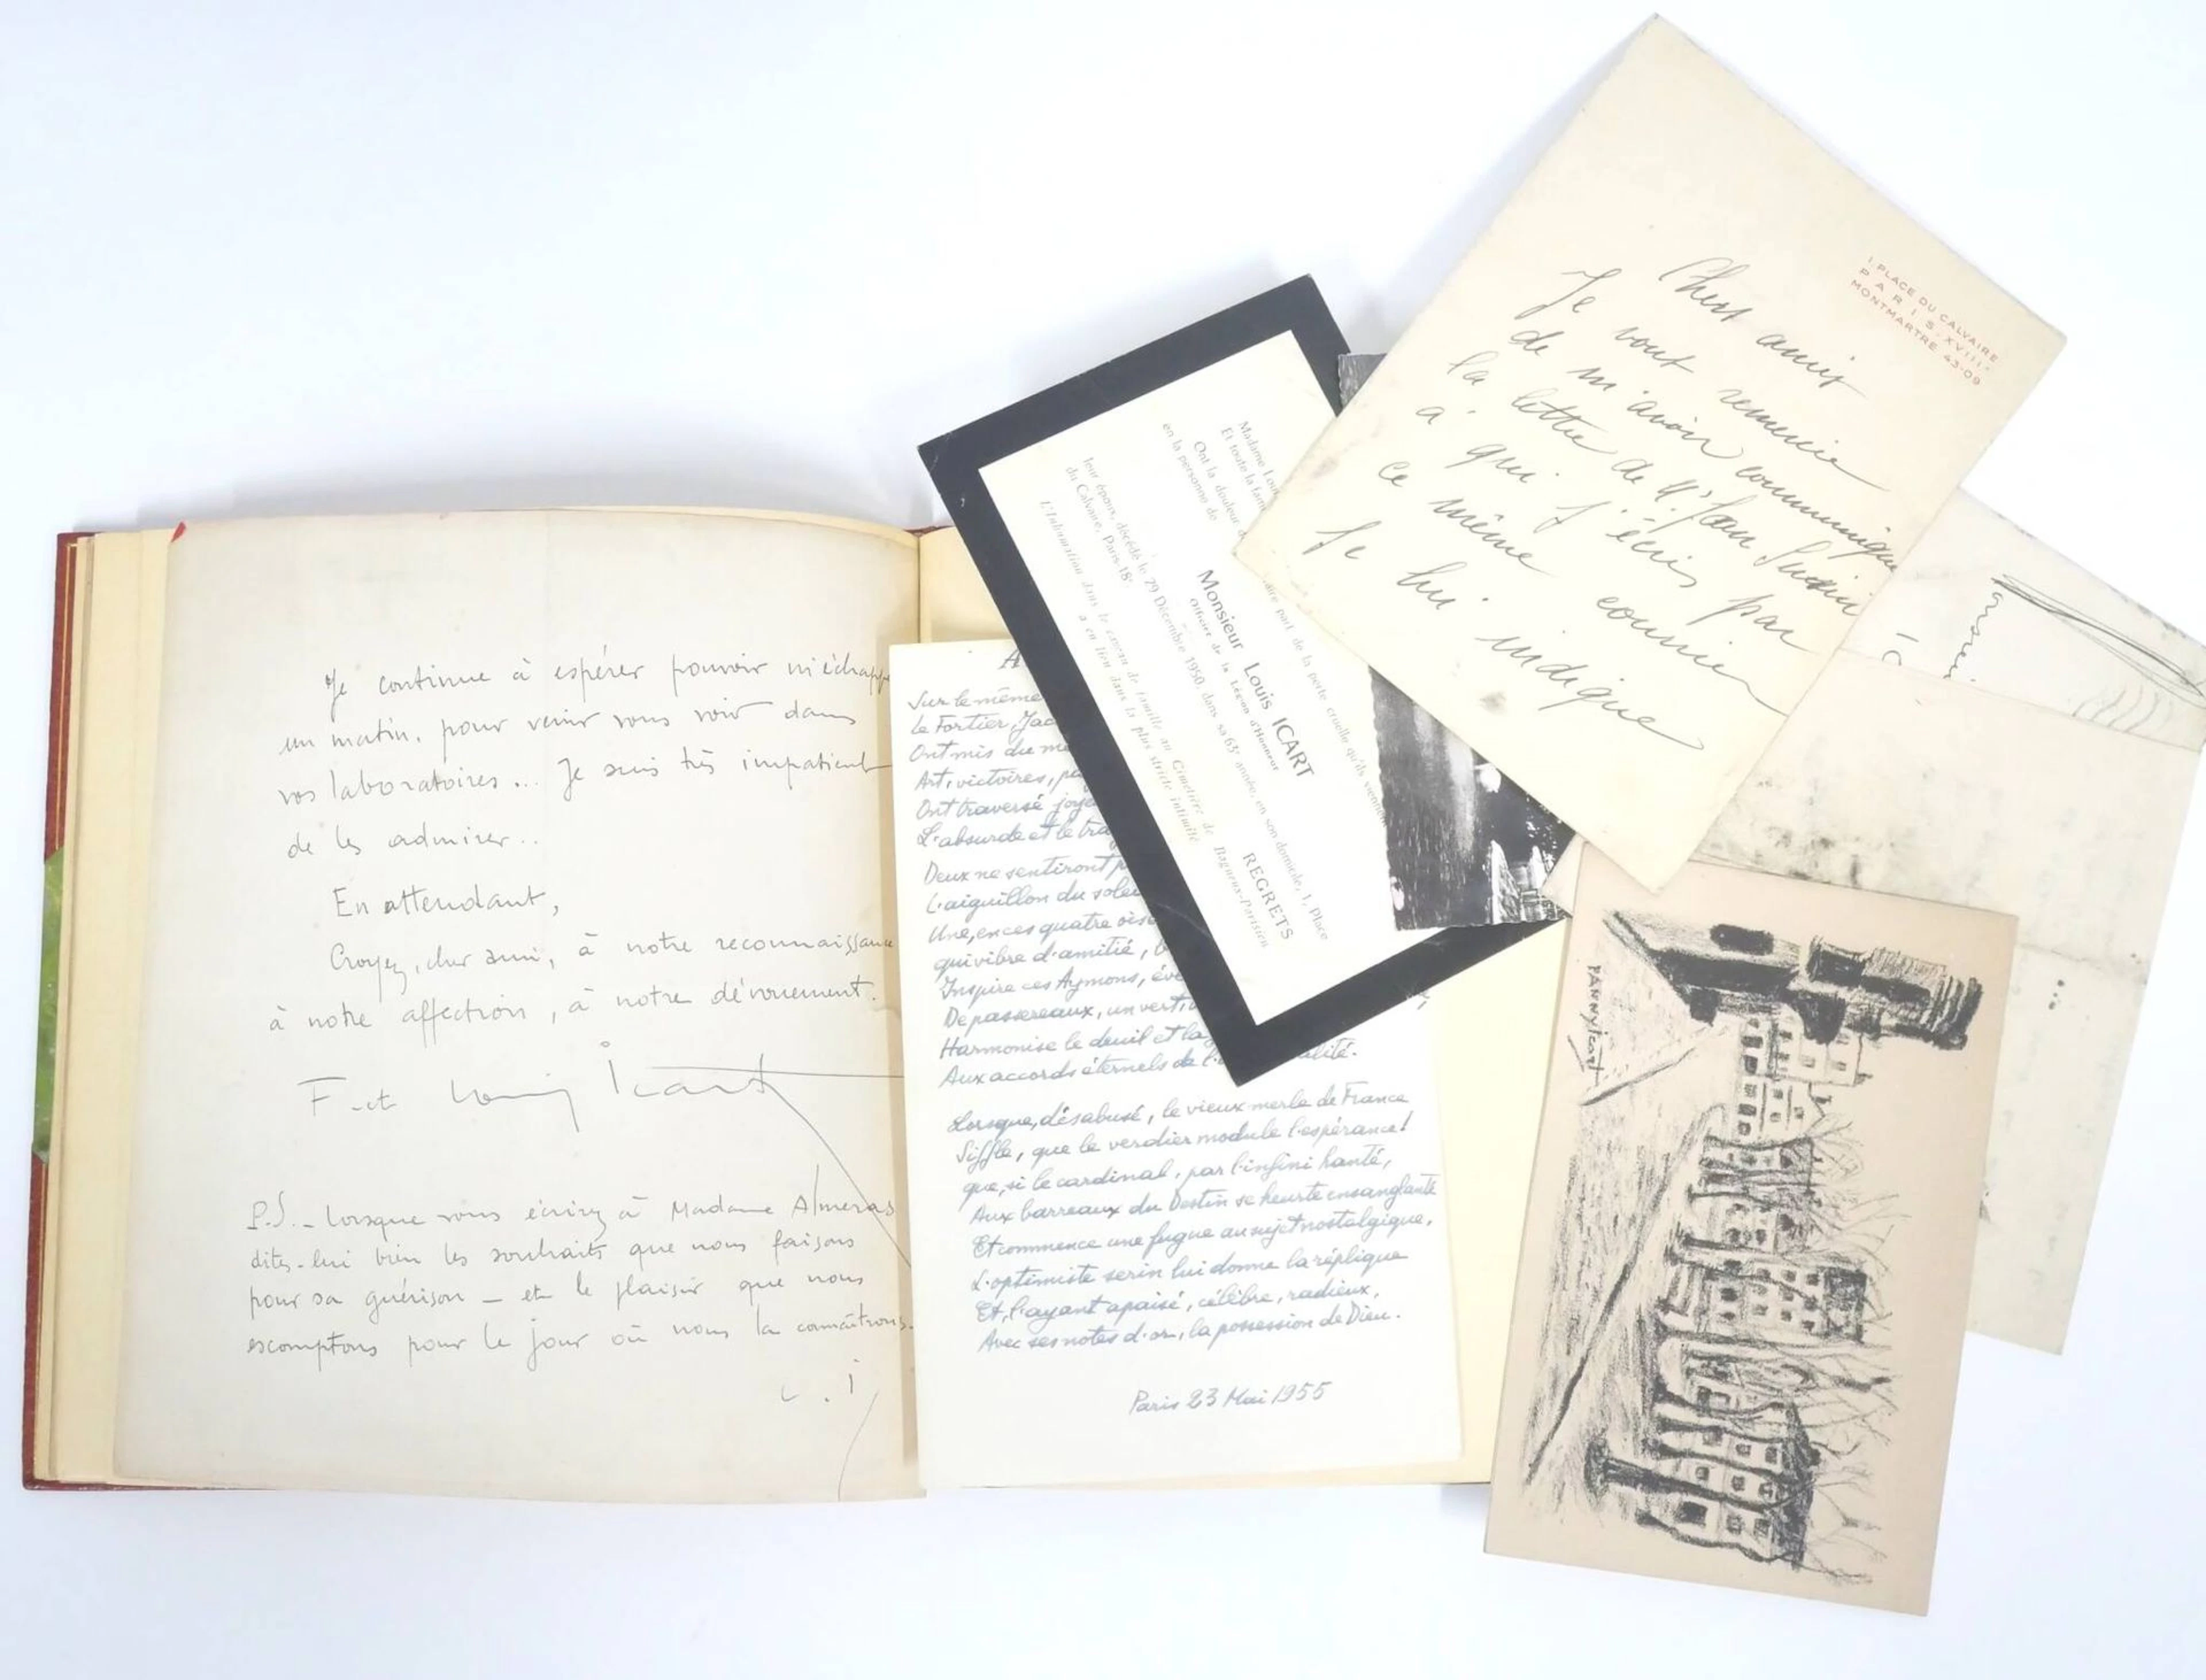 Je continue à espérer pouvoir m'échappe
un matin, pour venir vous voir dans
vos laboratoires... Je suis très impatient
de les admirer..
En attendant,
Croyez, cher ami, à notre reconnaissance
à notre affection, à notre dévouement.
F. et Louis Icart
P.S. - Lorsque vous écrirez à Madame Almeras
dites-lui bien les souhaits que nous faisons
pour sa guérison - et le plaisir que nous
escomptons pour le jour où nous la connaîtrons.
L. I
A
Sur le même
le Fortier, Jac
Ont mis du m
Art, victoires,
Ont traversé joye
L'absurde et le tra
Deux ne sentiront p
L'aiguillon du solei
Une, en ces quatre ois
qui vibre d'amitié,
Inspire ces Aymons, év
De passereaux, un verti
Harmonise le deuil et la
Aux accords éternels de l' alité.
Lorsque, désabusé, le vieux merle de France
Siffle, que le verdier module l'espérance!
que, si le cardinal, par l'infini hanté,
Aux barreaux du Destin se heurte ensanglanté
Et commence une fugue au sujet nostalgique,
L'optimiste serin lui donne la réplique
Et, l'ayant apaisé, célèbre, radieux,
Avec ses notes d'or, la possession de Dieu.
Paris 23 Mai 1955
Madame Loui
Et toute la fam
Ont la douleur d
faire part de la perte cruelle qu'ils viennen
en la personne de
Monsieur Louis ICART
Officier de la Légion d'Honneur
leur époux, décédé le 29 Décembre 1950, dans sa 63e année, en son domicile, 1, Place
du Calvaire, Paris-18e
L'Inhumation dans le caveau de famille au Cimetière de Bagneux-Parisien
a eu lieu dans la plus stricte intimité
REGRETS
1, PLACE DU CALVAIRE
PARIS-XVIII.
MONTMARTRE 43-09
Chers amis
Je vous remercie
de m'avoir communiqué
la lettre de Mr Jean
à qui j'écris par
ce même courrier
Je lui indique
FANNY Icart